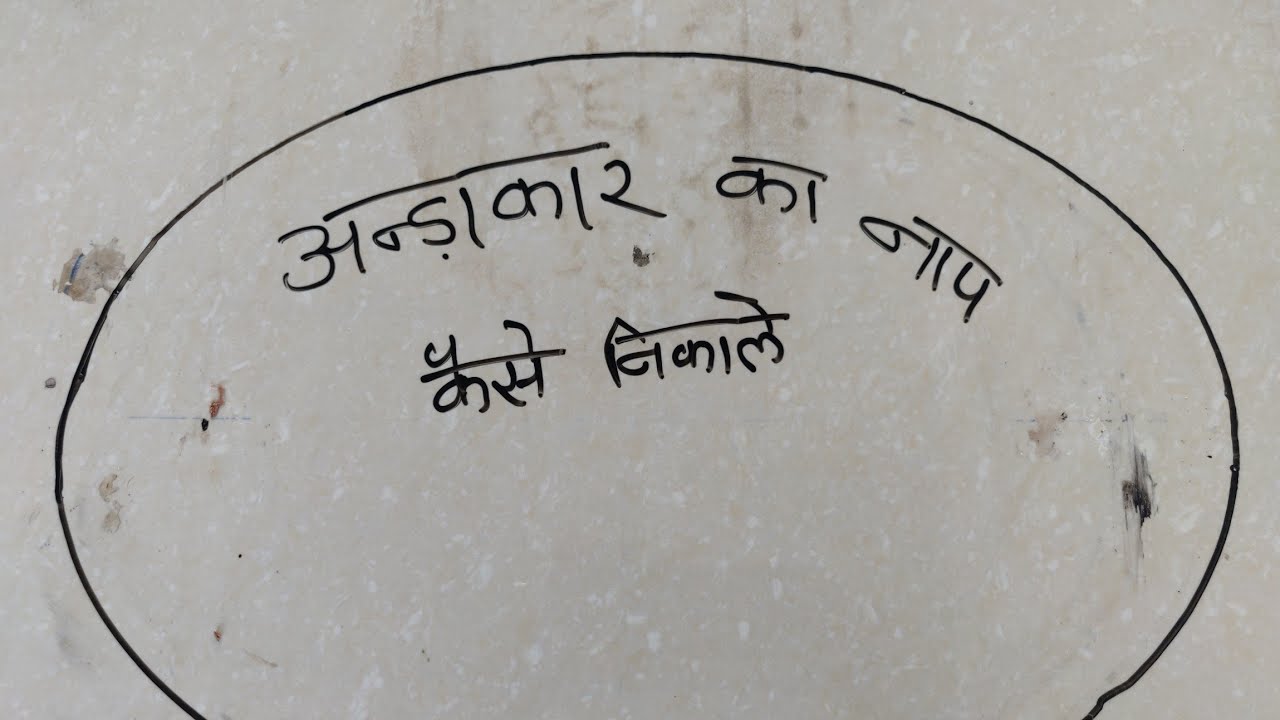 अन्ड़ाकार का नाप
कैसे निकाले